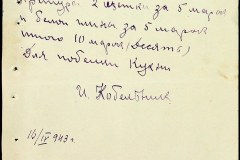 2 щетки за 5 марок
и белой глины за 5 марок
итого 10 марок (Десять)
Для побелки Кухни
И. Кобельник
16/IV 943 г.